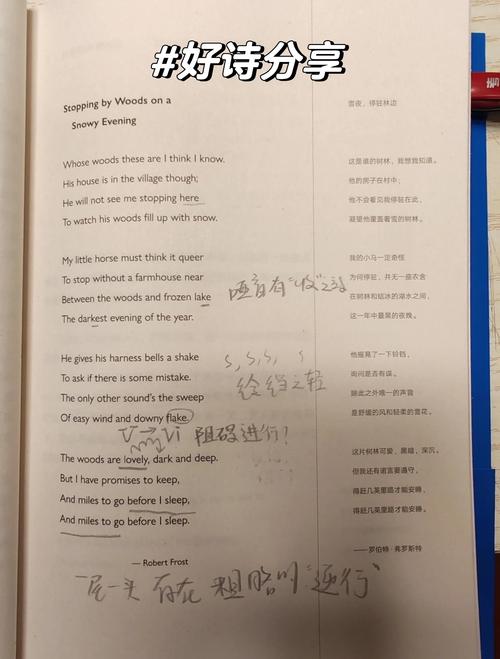 #好诗分享
Stopping by Woods on a
Snowy Evening
雪夜，停驻林边
Whose woods these are I think I know.
这是谁的树林，我想我知道。
His house is in the village though;
他的房子在村中；
He will not see me stopping here
他不会看见我停驻在此，
To watch his woods fill up with snow.
凝望他覆盖着雪的树林。
My little horse must think it queer
我的小马一定奇怪
To stop without a farmhouse near
为何停驻，并无一座农舍
Between the woods and frozen lake
在树林和结冰的湖水之间，
The darkest evening of the year.
这一年中最黑的夜晚。
He gives his harness bells a shake
他摇晃了一下铃铛，
To ask if there is some mistake.
询问是否有误。
The only other sound's the sweep
除此之外唯一的声音
Of easy wind and downy flake.
是舒缓的风和轻柔的雪花。
阻碍进行！
The woods are lovely, dark and deep.
这片树林可爱，黑暗，深沉。
But I have promises to keep,
但我还有诺言要遵守，
And miles to go before I sleep,
得赶几英里路才能安睡，
And miles to go before I sleep.
得赶几英里路才能安睡。
— Robert Frost
——罗伯特·弗罗斯特
存在 粗略的"逆行"